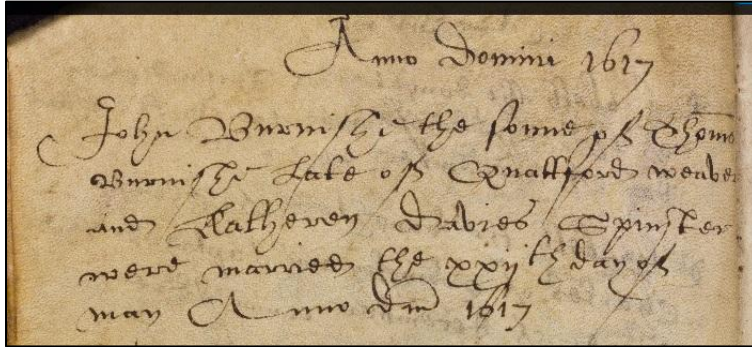 Anno Domini 1617
John Burnishe the sonne of Thom
Burnishe late of Quattford weaver
and Katheren Davies Spinster
were married the xxijth day of
may Anno dm 1617